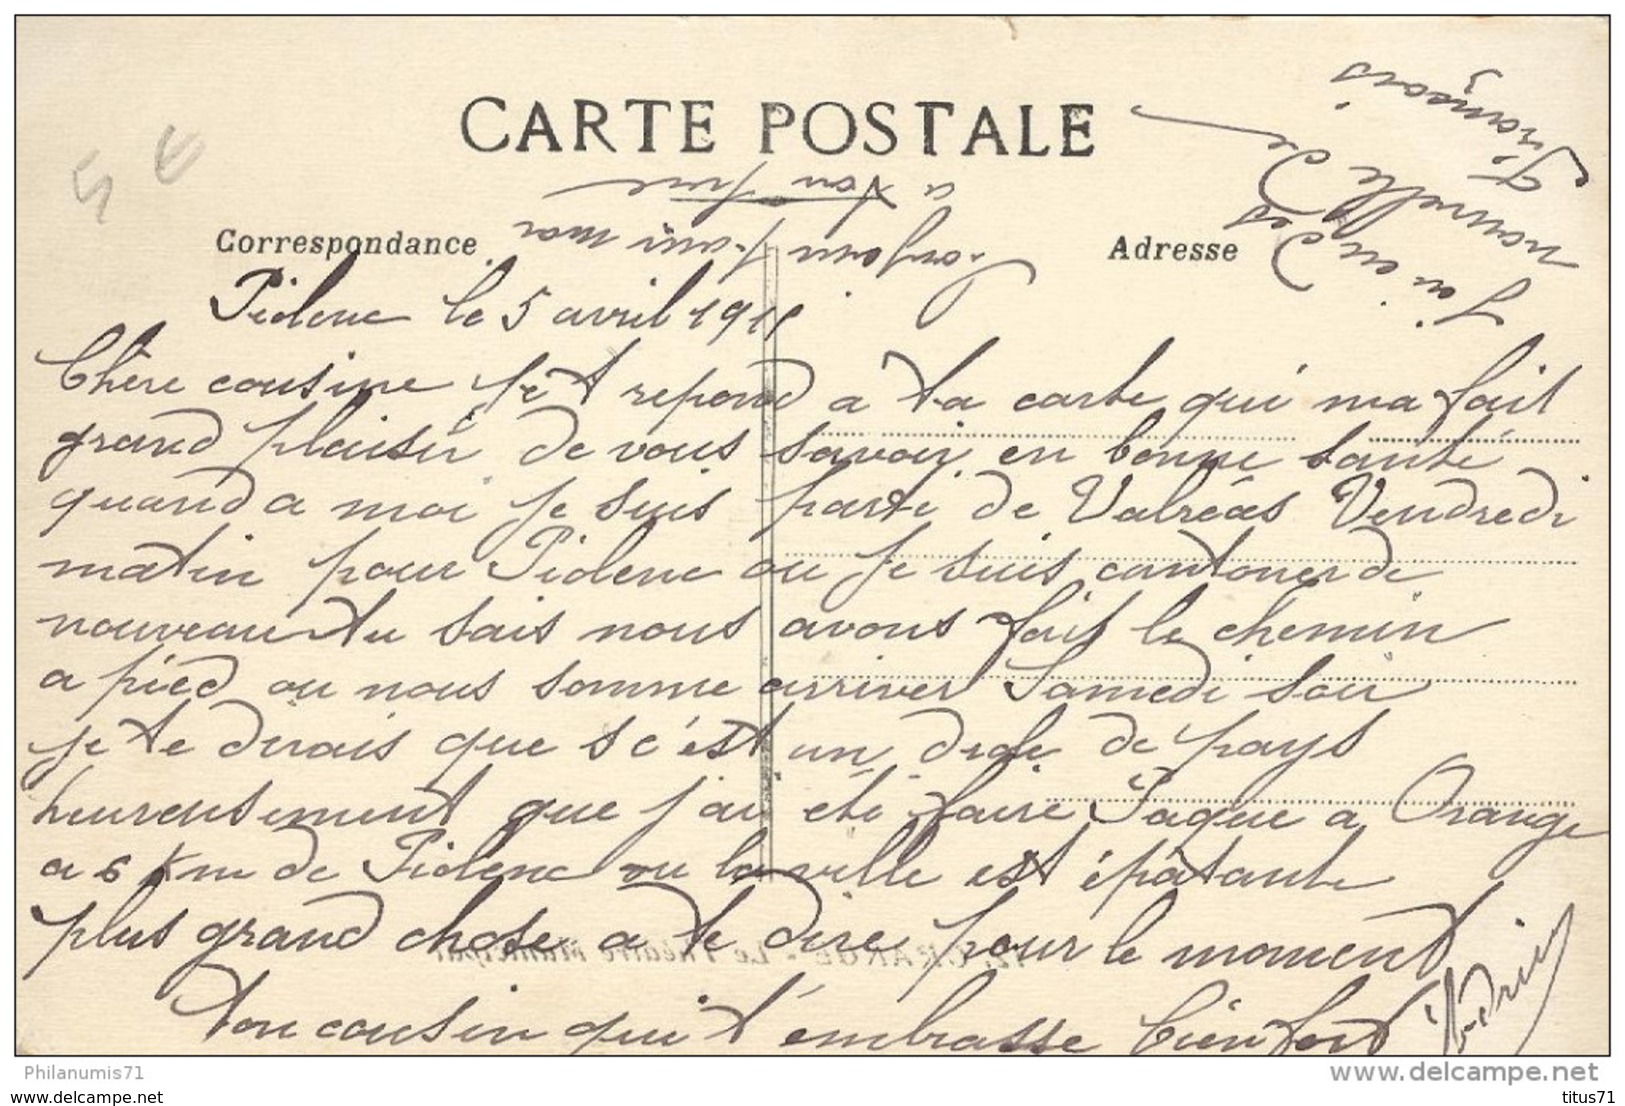 5 €
CARTE POSTALE
Correspondance
Adresse
Piolenc le 5 avril 191
Chère cousine je t repond a ta carte qui ma fait
grand plaisir de vous savoir en bonne santé
quand a moi je suis parti de Valréas Vendredi
matin pour Piolenc ou je suis cantoner de
nouveau tu sais nous avons fait le chemin
a pied ou nous somme arriver Samedi soir
je te dirais que s c'est un drole de pays
heureusement que j'ai été faire Paque a Orange
a 6 Km de Piolenc ou la ville est épatante
plus grand chose a te dire pour le moment
Ton cousin qui t'embrasse bien fort
J'ai eu des
nouvelle de
François
Bonjour
a ton père
12. ORANGE - Le Théâtre Municipal
Philanumis71
www.delcampe.net
delcampe.net
titus71